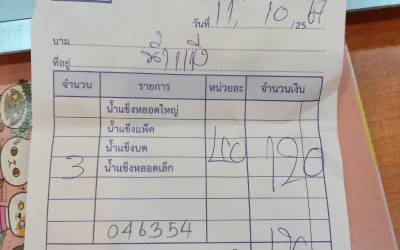 วันที่ 11 / 10 /25 67
นาม
ที่อยู่ น้ำแข็ง
จำนวน รายการ หน่วยละ จำนวนเงิน
น้ำแข็งหลอดใหญ่
น้ำแข็งแพ็ค
น้ำแข็งบด
3 น้ำแข็งหลอดเล็ก 40 120
046354
120